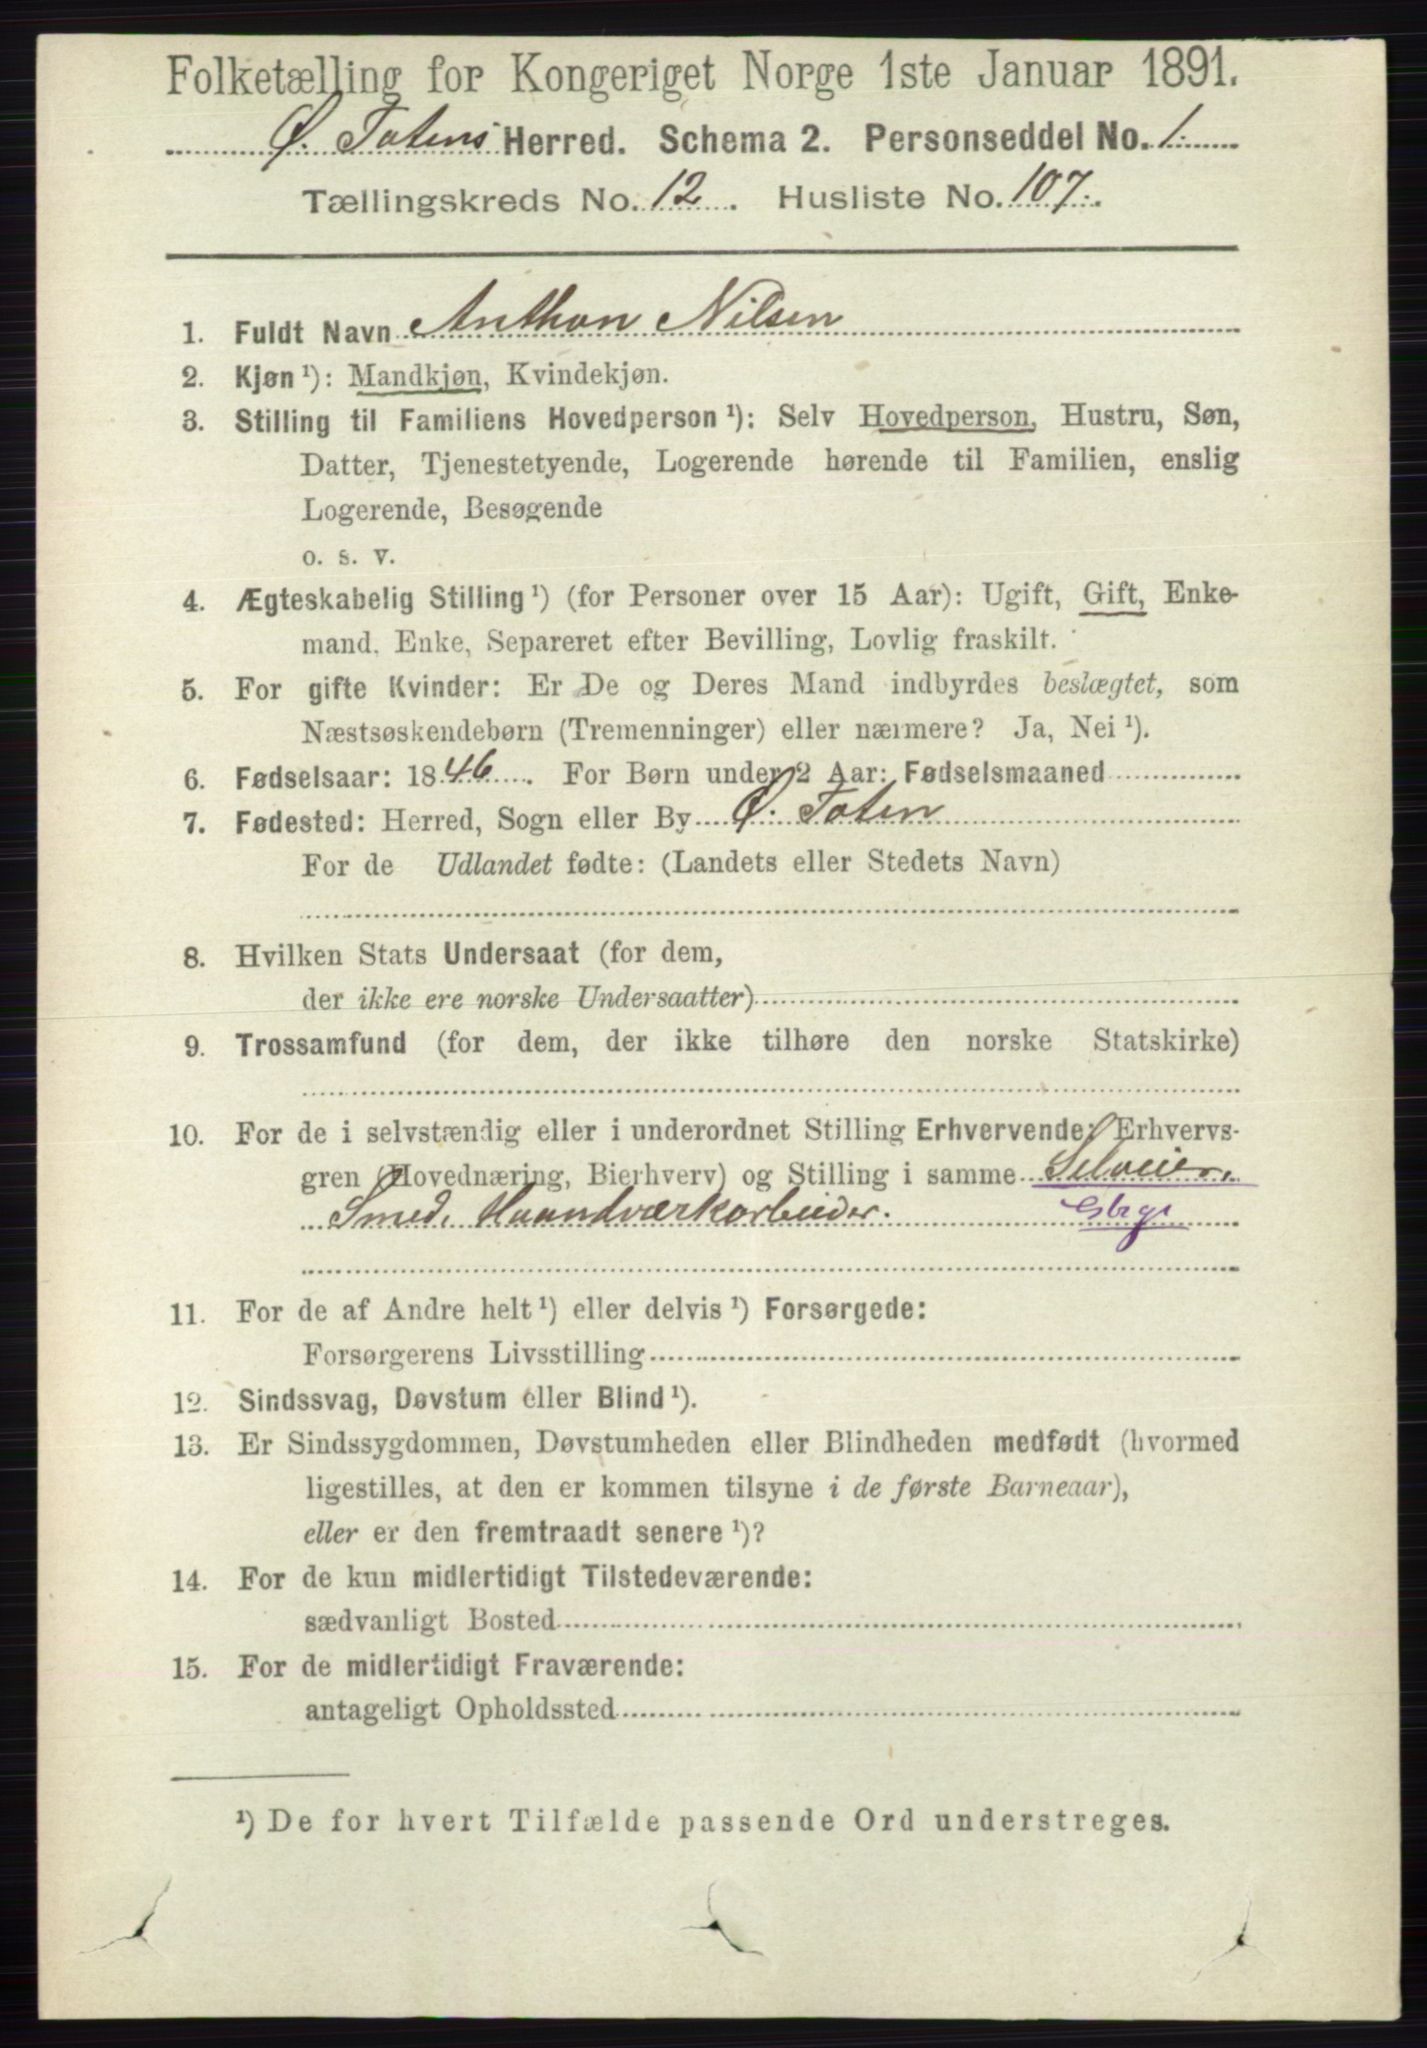 Folketælling for Kongeriget Norge 1ste Januar 1891.
Ø. Totens Herred. Schema 2. Personseddel No. 1.
Tællingskreds No. 12. Husliste No. 107.
1. Fuldt Navn Anthon Nilsen
2. Kjøn ¹): Mandkjøn, Kvindekjøn.
3. Stilling til Familiens Hovedperson ¹): Selv Hovedperson, Hustru, Søn,
Datter, Tjenestetyende, Logerende hørende til Familien, enslig
Logerende, Besøgende
o. s. v.
4. Ægteskabelig Stilling ¹) (for Personer over 15 Aar): Ugift, Gift, Enke-
mand, Enke, Separeret efter Bevilling, Lovlig fraskilt.
5. For gifte Kvinder: Er De og Deres Mand indbyrdes beslægtet, som
Næstsøskendebørn (Tremenninger) eller nærmere? Ja, Nei ¹).
6. Fødselsaar: 1846. For Børn under 2 Aar: Fødselsmaaned
7. Fødested: Herred, Sogn eller By Ø. Toten
For de Udlandet fødte: (Landets eller Stedets Navn)
8. Hvilken Stats Undersaat (for dem,
der ikke ere norske Undersaatter)
9. Trossamfund (for dem, der ikke tilhøre den norske Statskirke)
10. For de i selvstændig eller i underordnet Stilling Erhvervende: Erhvervs-
gren (Hovednæring, Bierhverv) og Stilling i samme Selveier,
Smed, Haandværkarbeider.
11. For de af Andre helt ¹) eller delvis ¹) Forsørgede:
Forsørgerens Livsstilling
12. Sindssvag, Døvstum eller Blind ¹).
13. Er Sindssygdommen, Døvstumheden eller Blindheden medfødt (hvormed
ligestilles, at den er kommen tilsyne i de første Barneaar),
eller er den fremtraadt senere ¹)?
14. For de kun midlertidigt Tilstedeværende:
sædvanligt Bosted
15. For de midlertidigt Fraværende:
antageligt Opholdssted
¹) De for hvert Tilfælde passende Ord understreges.